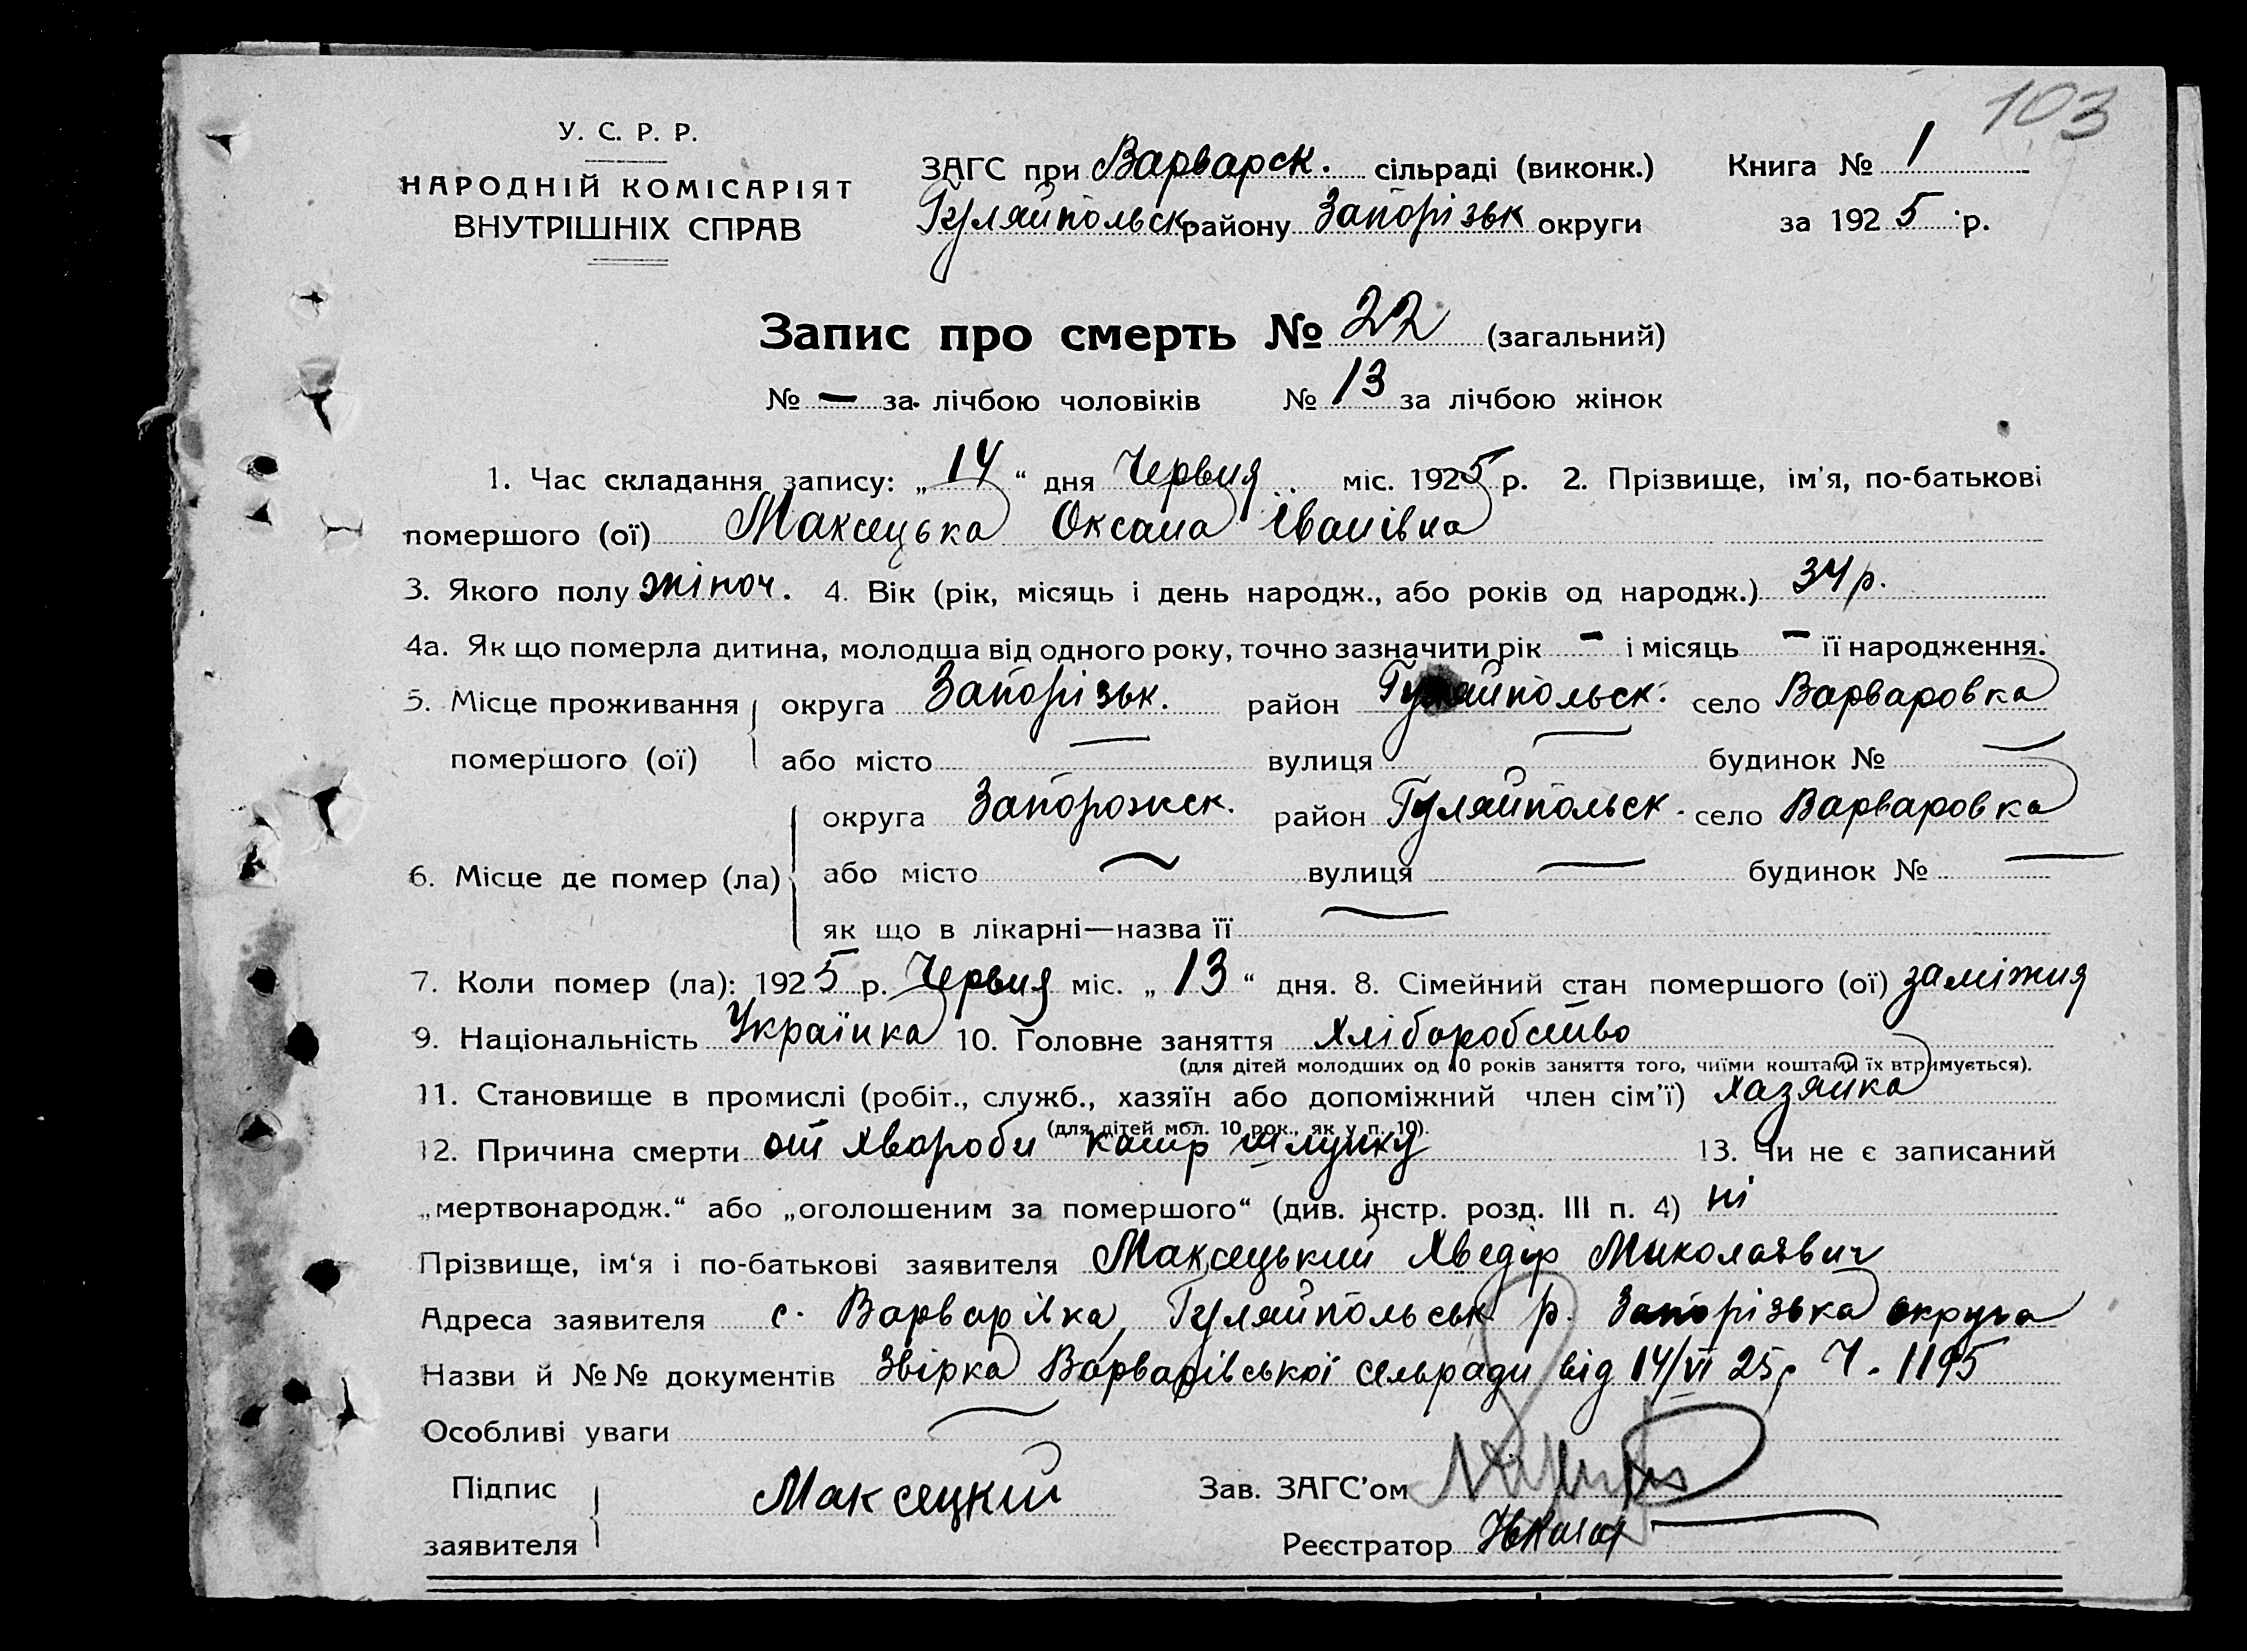 103
У. С. Р. Р.
НАРОДНІЙ КОМІСАРІЯТ
ВНУТРІШНІХ СПРАВ
ЗАГС при Варварск. сільраді (виконк.) Книга № 1
Гуляйпольск району Запорізьк округи за 1925 р.
Запис про смерть № 22 (загальний)
№ — за лічбою чоловіків № 13 за лічбою жінок
1. Час складання запису: „14“ дня Червня міс. 1925 р. 2. Прізвище, ім'я, по-батькові
помершого (ої) Максецька Оксана Іванівна
3. Якого полу жіноч. 4. Вік (рік, місяць і день народж., або років од народж.) 34 р.
4а. Як що померла дитина, молодша від одного року, точно зазначити рік — і місяць — її народження.
5. Місце проживання округа Запорізьк. район Гуляйпольск. село Варваровка
помершого (ої) або місто — вулиця — будинок № —
округа Запорожск. район Гуляйпольск. село Варваровка
6. Місце де помер (ла) або місто — вулиця — будинок № —
як що в лікарні—назва її —
7. Коли помер (ла): 1925 р. Червня міс. „13“ дня. 8. Сімейний стан помершого (ої) заміжня
9. Національність Українка 10. Головне заняття Хліборобство
(для дітей молодших од 10 років заняття того, чиїми коштами їх втримується).
11. Становище в промислі (робіт., служб., хазяїн або допоміжний член сім'ї) хазяйка
(для дітей мол. 10 рок., як у п. 10).
12. Причина смерти от хвороби катар шлунку 13. Чи не є записаний
„мертвонародж.“ або „оголошеним за помершого“ (див. інстр. розд. III п. 4) ні
Прізвище, ім'я і по-батькові заявителя Максецький Хведір Миколаявич
Адреса заявителя с. Варварівка, Гуляйпольськ р. Запорізька округа
Назви й №№ документів Звірка Варварівської сельради від 14/VI 25р Ч. 1195
Особливі уваги —
Підпис Максецкий Зав. ЗАГС'ом
заявителя Реєстратор